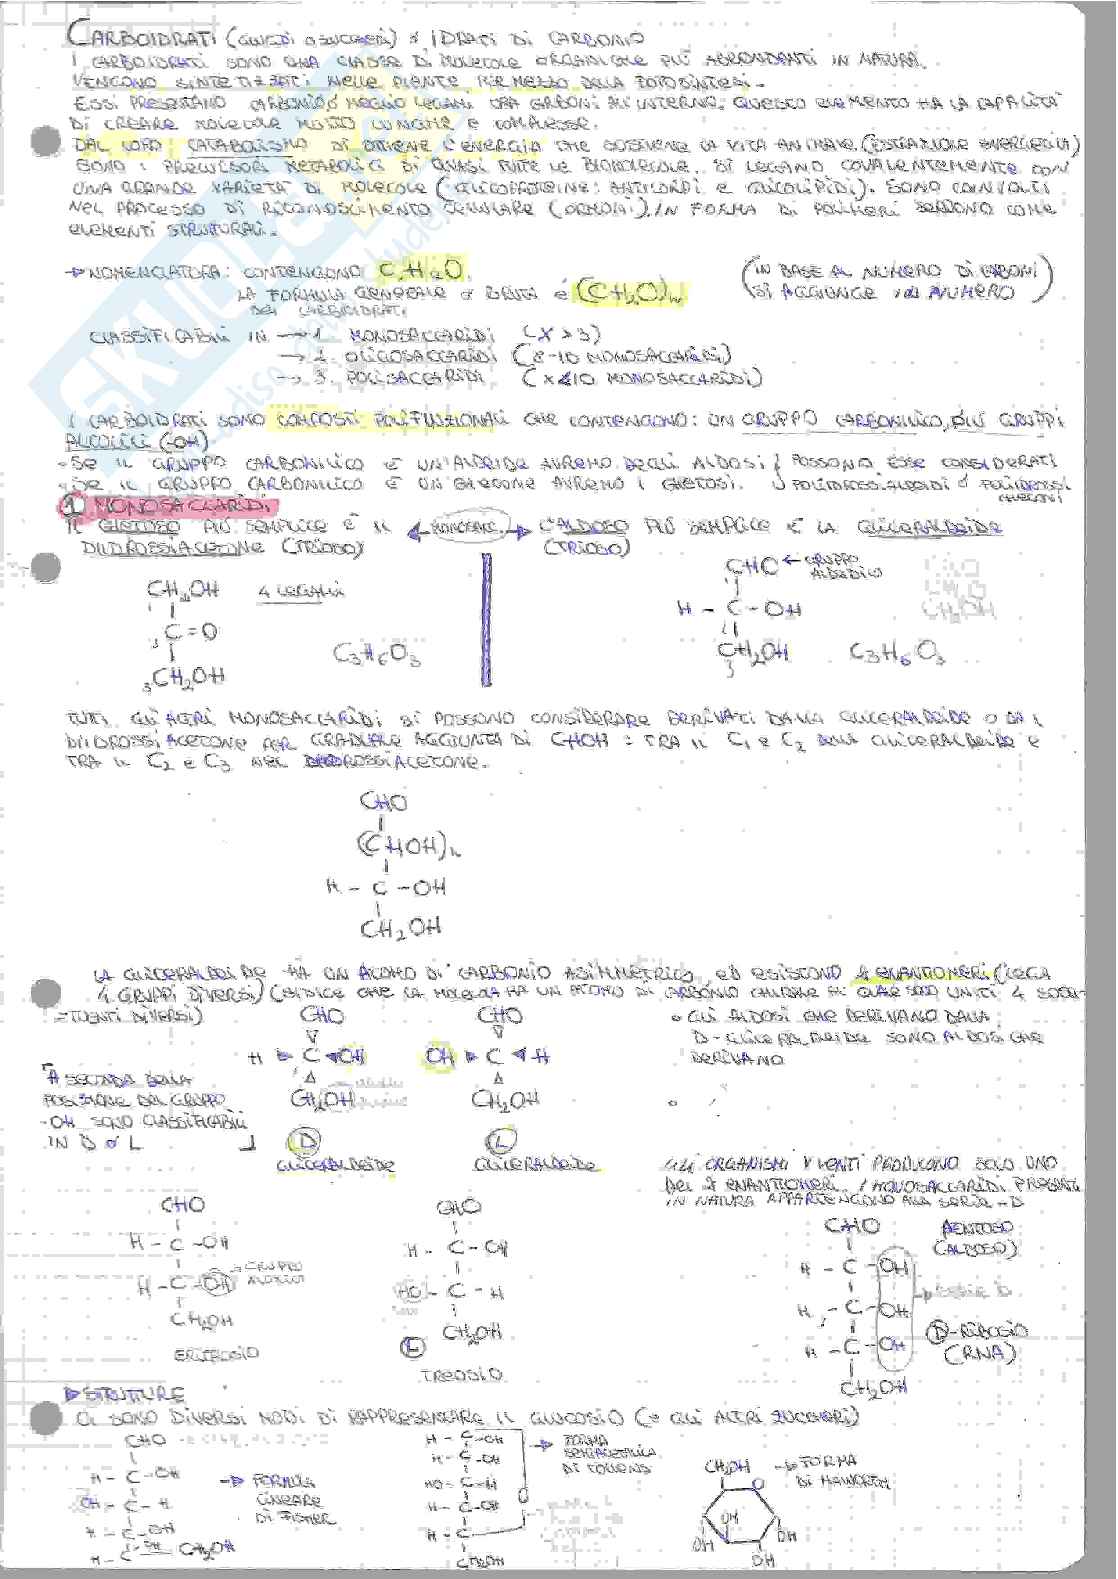 CARBOIDRATI (GLUCIDI O ZUCCHERI) = IDRATI DI CARBONIO
I CARBOIDRATI SONO UNA CLASSE DI MOLECOLE ORGANICHE PIÙ ABBONDANTI IN NATURA.
VENGONO SINTETIZZATI NELLE PIANTE PER MEZZO DELLA FOTOSINTESI.
ESSI PRESENTANO CARBONIO, O MEGLIO LEGAMI TRA CARBONI ALL'INTERNO. QUESTO ELEMENTO HA LA CAPACITÀ
DI CREARE MOLECOLE MOLTO LUNGHE E COMPLESSE.
DAL LORO CATABOLISMO SI OTTIENE L'ENERGIA CHE SOSTIENE LA VITA ANIMALE. (ESTRAZIONE ENERGETICA)
SONO I PRECURSORI METABOLICI DI QUASI TUTTE LE BIOMOLECOLE. SI LEGANO COVALENTEMENTE CON
UNA GRANDE VARIETÀ DI MOLECOLE (GLICOPROTEINE: ANTICORPI E GLICOLIPIDI). SONO COINVOLTI
NEL PROCESSO DI RICONOSCIMENTO CELLULARE (ORMONI). IN FORMA DI POLIMERI SERVONO COME
ELEMENTI STRUTTURALI.
→ NOMENCLATURA: CONTENGONO C, H E O.
LA FORMULA GENERALE O BRUTA È (CH2O)n
DEI CARBOIDRATI
(IN BASE AL NUMERO DI CARBONI
SI AGGIUNGE IL NUMERO)
CLASSIFICABILI IN → 1. MONOSACCARIDI (X > 3)
→ 2. OLIGOSACCARIDI (8-10 MONOSACCARIDI)
→ 3. POLISACCARIDI (X ≤ 10 MONOSACCARIDI)
I CARBOIDRATI SONO COMPOSTI POLIFUNZIONALI CHE CONTENGONO: UN GRUPPO CARBONILICO, PIÙ GRUPPI
ALCOLICI (-OH)
- SE IL GRUPPO CARBONILICO È UN'ALDEIDE AVREMO DEGLI ALDOSI } POSSONO ESSE CONSIDERATI
- SE IL GRUPPO CARBONILICO È UN CHETONE AVREMO I CHETOSI. } POLIIDROSSI-ALDEIDI O POLIIDROSSI
CHETONI
1 MONOSACCARIDI
IL CHETOSO PIÙ SEMPLICE È IL ← MONOSACC. → L'ALDOSO PIÙ SEMPLICE È LA GLICERALDEIDE
DIIDROSSIACETONE (TRIOSO) (TRIOSO)
CH2OH 4 LEGAMI
C=O
3CH2OH
C3H6O3
CHO ← GRUPPO
ALDEIDICO
H - C - OH
CH2OH
3
C3H6O3
TUTTI GLI ALTRI MONOSACCARIDI SI POSSONO CONSIDERARE DERIVATI DALLA GLICERALDEIDE O DAL
DIIDROSSIACETONE PER GRADUALE AGGIUNTA DI CHOH: TRA IL C1 E C2 DELLA GLICERALDEIDE E
TRA IL C2 E C3 NEL DIIDROSSIACETONE.
CHO
(CHOH)n
H - C - OH
CH2OH
LA GLICERALDEIDE HA UN ATOMO DI CARBONIO ASIMMETRICO, ED ESISTONO 4 ENANTIOMERI (LEGA
4 GRUPPI DIVERSI) (SI DICE CHE LA MOLECOLA HA UN ATOMO DI CARBONIO CHIRALE AL QUALE SONO UNITI 4 SOSTI-
TUENTI DIVERSI)
CHO
H ► C ◄ OH
CH2OH
D
GLICERALDEIDE
CHO
OH ► C ◄ H
CH2OH
L
GLICERALDEIDE
A SECONDA DELLA
POSIZIONE DEL GRUPPO
-OH SONO CLASSIFICABILI
IN D O L
• GLI ALDOSI CHE DERIVANO DALLA
D-GLICERALDEIDE SONO ALDOSI CHE
DERIVANO
GLI ORGANISMI VIVENTI PRODUCONO SOLO UNO
DEI 2 ENANTIOMERI. I MONOSACCARIDI PRESENTI
IN NATURA APPARTENGONO ALLA SERIE -D
CHO
H - C - OH
H - C - OH → GRUPPO
ALCOLICO
CH2OH
ERITROSIO
CHO
H - C - OH
HO - C - H
CH2OH
TREOSIO
CHO
H - C - OH
H - C - OH
H - C - OH
CH2OH
PENTOSO
(ALDOSO)
D-RIBOSIO
(RNA)
► STRUTTURE
CI SONO DIVERSI MODI DI RAPPRESENTARE IL GLUCOSIO (E GLI ALTRI ZUCCHERI)
CHO
H - C - OH
OH - C - H
H - C - OH
H - C - OH CH2OH
→ FORMULA
LINEARE
DI FISHER
H - C - OH
H - C - OH
HO - C - H
H - C - OH
H - C
CH2OH
O
→ FORMA
SEMIACETALICA
DI TOLLENS
CH2OH
O
OH
OH
OH
OH
→ FORMA
DI HAWORTH
SKUOLA